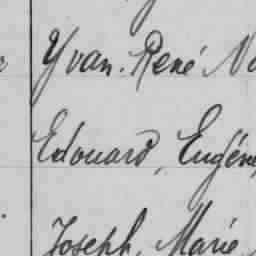 Yvan. René
Edouard, Eugén
Joseph, Marie